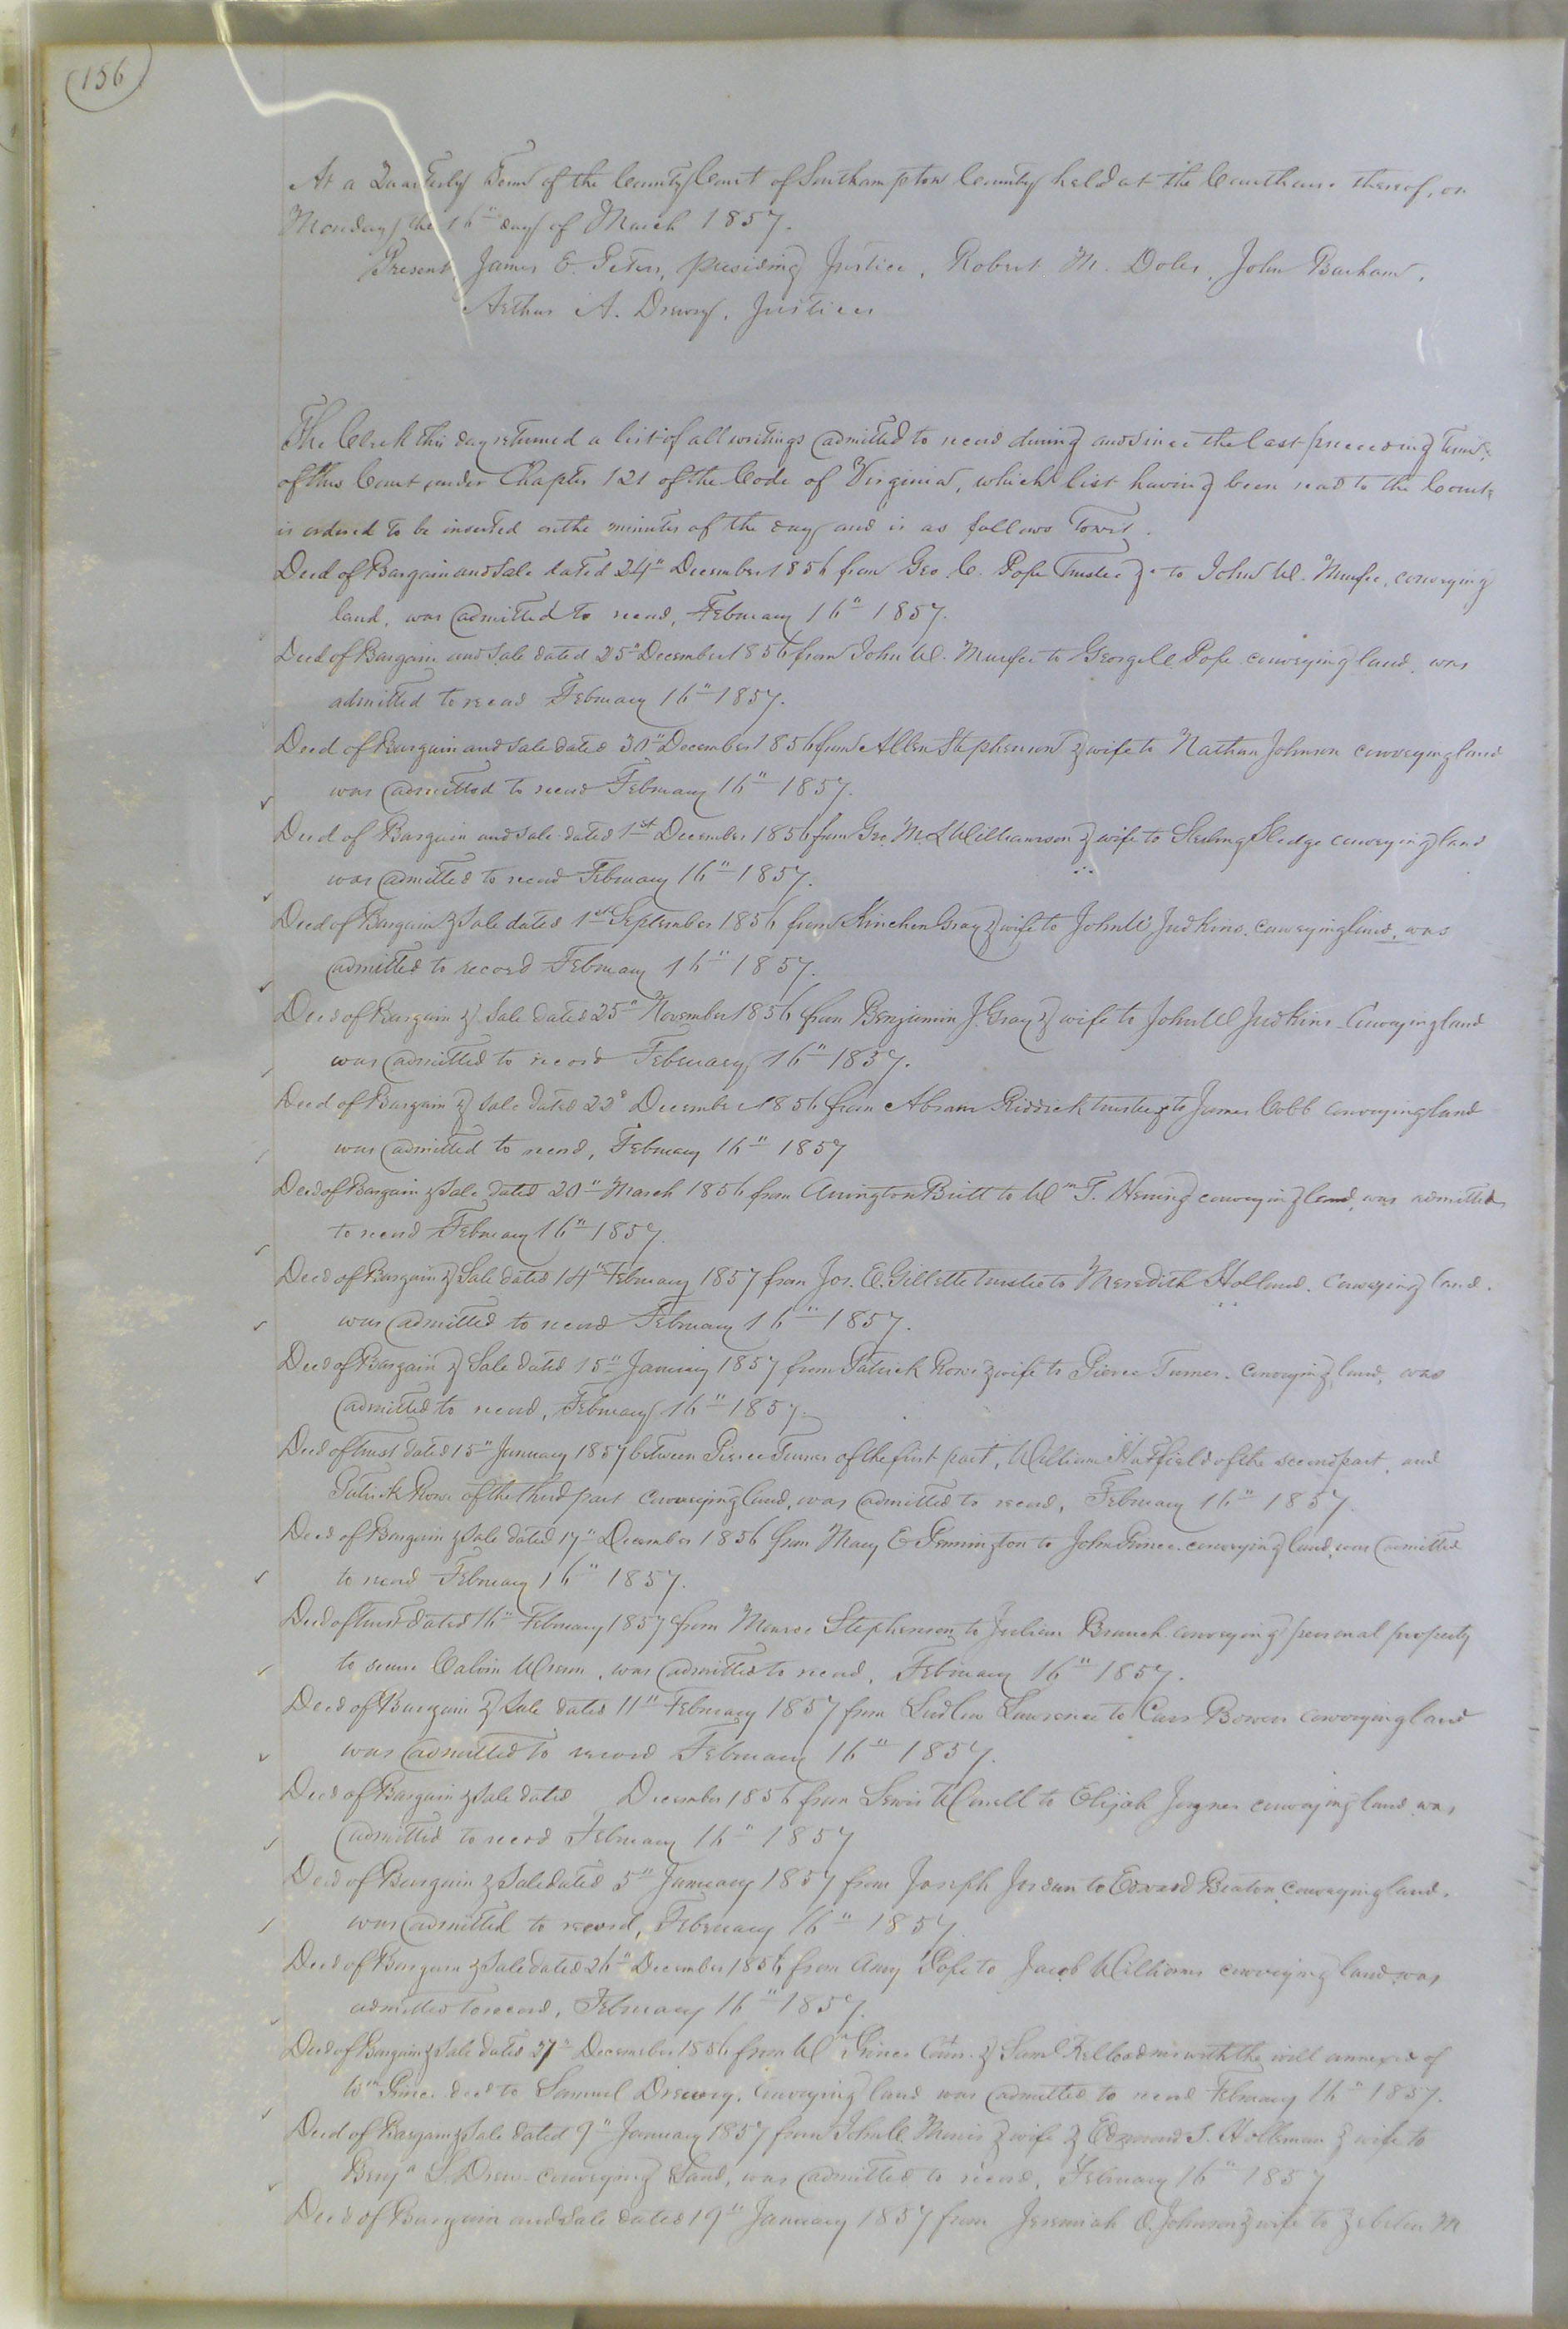 156
At a Quarterly Term of the County Court of Southampton County held at the Courthouse thereof, on
Monday the 16" day of March 1857.
Present James E. Peters, presiding Justice, Robert M. Doles, John Barham,
Arthur A. Drewry, Justices
The Clerk this day returned a list of all writings admitted to record during and since the last preceeding Term
of this Court, under Chapter 121 of the Code of Virginia, which list having been read to the Court
is ordered to be inserted on the minutes of the day and is as follows Towit.
Deed of Bargain and Sale dated 24" December 1856 from Geo. C. Pope Trustee &c to John W. Murfee, conveying
land, was admitted to record, February 16" 1857.
Deed of Bargain and Sale dated 25" December 1856 from John W. Murfee to George C. Pope conveying land, was
admitted to record February 16" 1857.
Deed of Bargain and Sale dated 30" December 1856 from Allen Stephenson & wife to Nathan Johnson conveying land
was admitted to record February 16" 1857.
Deed of Bargain and Sale dated 1st December 1856 from Geo. M. Williamson & wife to Sterling Sledge conveying land
was admitted to record February 16" 1857.
Deed of Bargain & Sale dated 1st September 1856 from Kinchen Gray & wife to John W Judkins, conveying land, was
admitted to record February 16" 1857.
Deed of Bargain & Sale dated 25" November 1856 from Benjamin J. Gray & wife to John W Judkins Conveying land
was admitted to record February 16" 1857.
Deed of Bargain & Sale dated 22d December 1856 from Abram Riddick trustee &c to James Cobb conveying land
was admitted to record, February 16" 1857
Deed of Bargain & Sale dated 20" March 1856 from Arrington Britt to Wm T. Herring conveying land, was admitted
to record February 16" 1857.
Deed of Bargain & Sale dated 14" February 1857 from Jos. E. Gillette trustee to Meredith Holland. Conveying land.
was admitted to record February 16" 1857.
Deed of Bargain & Sale dated 15" January 1857 from Patrick Rowe & wife to Pierce Turner. conveying land, was
admitted to record, February 16" 1857.
Deed of Trust dated 15" January 1857 between Pierce Turner of the first part, William Hatfield of the second part, and
Patrick Rowe of the third part conveying land, was admitted to record, February 16" 1857.
Deed of Bargain & Sale dated 17" December 1856 from Mary E Pennington to John Prince conveying land, was admitted
to record February 16" 1857.
Deed of Trust dated 16" February 1857 from Monroe Stephenson to Julian Branch conveying personal property
to secure Calvin Wrenn, was admitted to record, February 16" 1857.
Deed of Bargain & Sale dated 11" February 1857 from Lawrence to Bowen conveying land
was admitted to record February 16" 1857.
Deed of Bargain & Sale dated December 1856 from Lewis Worrell to Elijah Joyner conveying land was
admitted to record February 16" 1857
Deed of Bargain & Sale dated 5" January 1857 from Joseph Jordan to Edward Beaton conveying land,
was admitted to record, February 16" 1857.
Deed of Bargain & Sale dated 26" December 1856 from Amy Pope to Jacob Williams conveying land was
admitted to record, February 16" 1857.
Deed of Bargain & Sale dated 27" December 1856 from Wm Prince & Saml Kello admr with the will annexed of
Wm Prince decd to Samuel Drewry, conveying land was admitted to record February 16" 1857.
Deed of Bargain & Sale dated 9" January 1857 from John C. Morris & wife & Edmond T. Holleman & wife to
Benjn L. Drew conveying Land, was admitted to record, February 16" 1857
Deed of Bargain and Sale dated 19" January 1857 from Jeremiah O. Johnson & wife to M